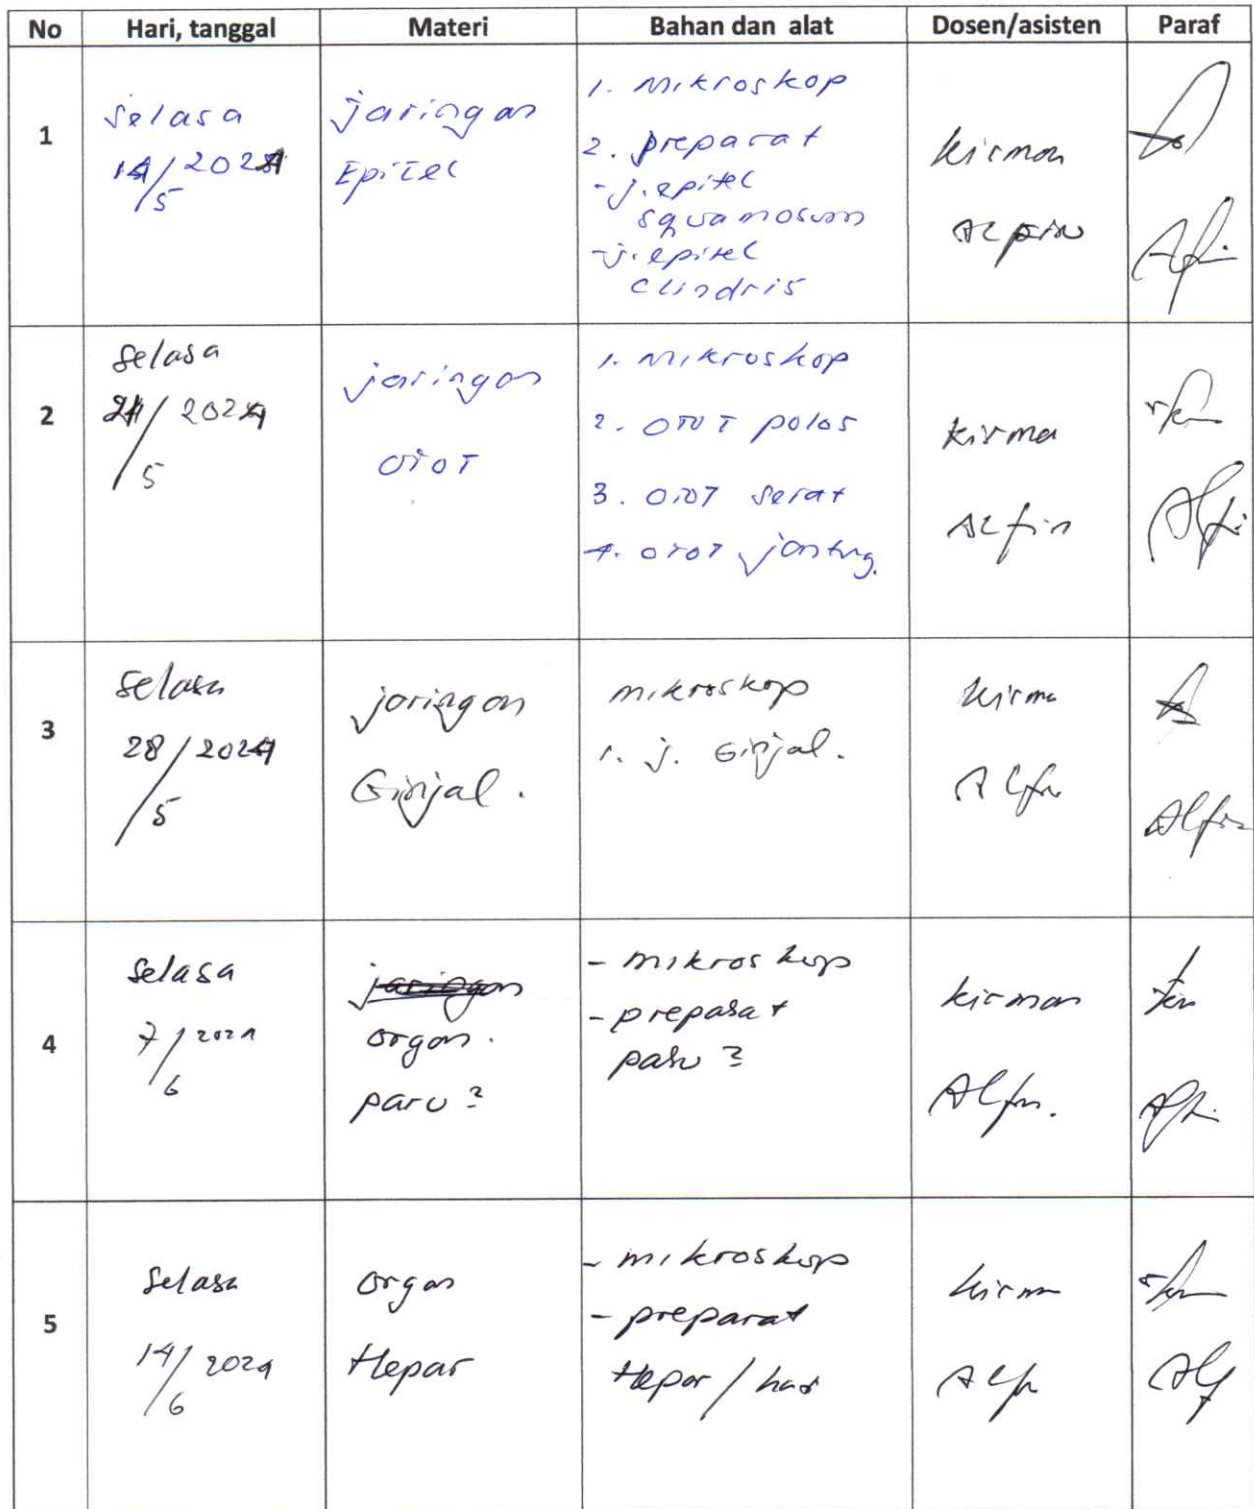 No Hari, tanggal Materi Bahan dan alat Dosen/asisten Paraf
1
Selasa
14/5 2024
jaringan
Epitel
1. Mikroskop
2. preparat
- j. epitel
squamosum
- j. epitel
clindris
kirman
Alfin
2
Selasa
21/5 2024
jaringan
OTOT
1. Mikroskop
2. OTOT polos
3. OTOT serat
4. OTOT jantung.
kirma
Alfin
3
Selasa
28/5 2024
jaringan
Ginjal.
mikroskop
1. j. Ginjal.
kirma
Alfin
4
Selasa
7/6 2024
jaringan
organ.
paru ²
- mikroskop
- preparat
paru ²
kirman
Alfin.
5
Selasa
14/6 2024
organ
Hepar
- mikroskop
- preparat
Hepar / hati
kirman
Alfin